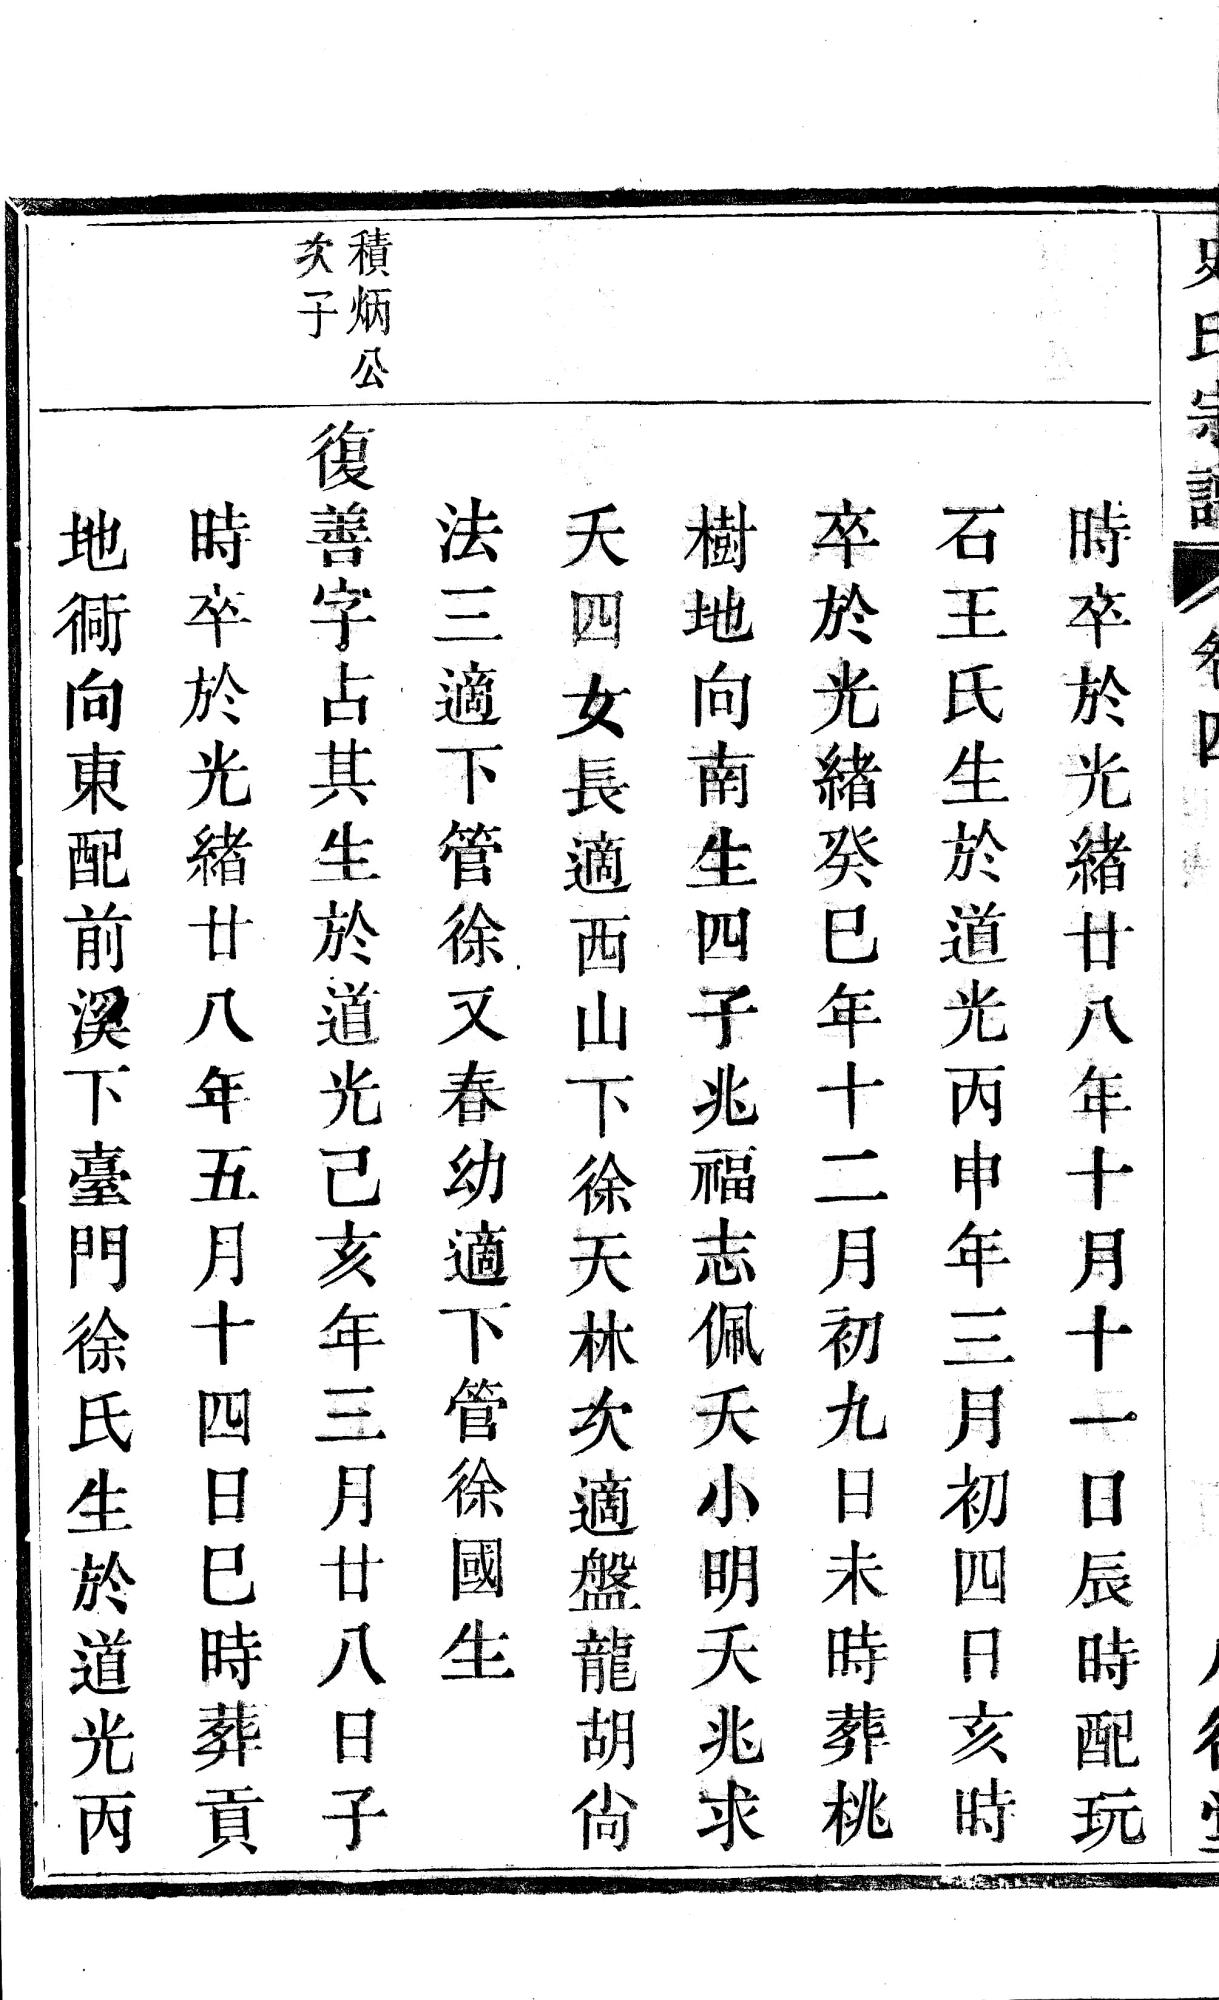 氏宗譜
卷四
時卒於光緒廿八年十月十一日辰時配玩
石王氏生於道光丙申年三月初四日亥時
卒於光緒癸巳年十二月初九日未時葬桃
樹地向南生四子兆福志佩夭小明夭兆求
夭四女長適西山下徐天林次適盤龍胡尙
法三適下管徐又春幼適下管徐國生
積炳公
次子
復善字占其生於道光己亥年三月廿八日子
時卒於光緒廿八年五月十四日巳時葬貢
地衕向東配前溪下臺門徐氏生於道光丙